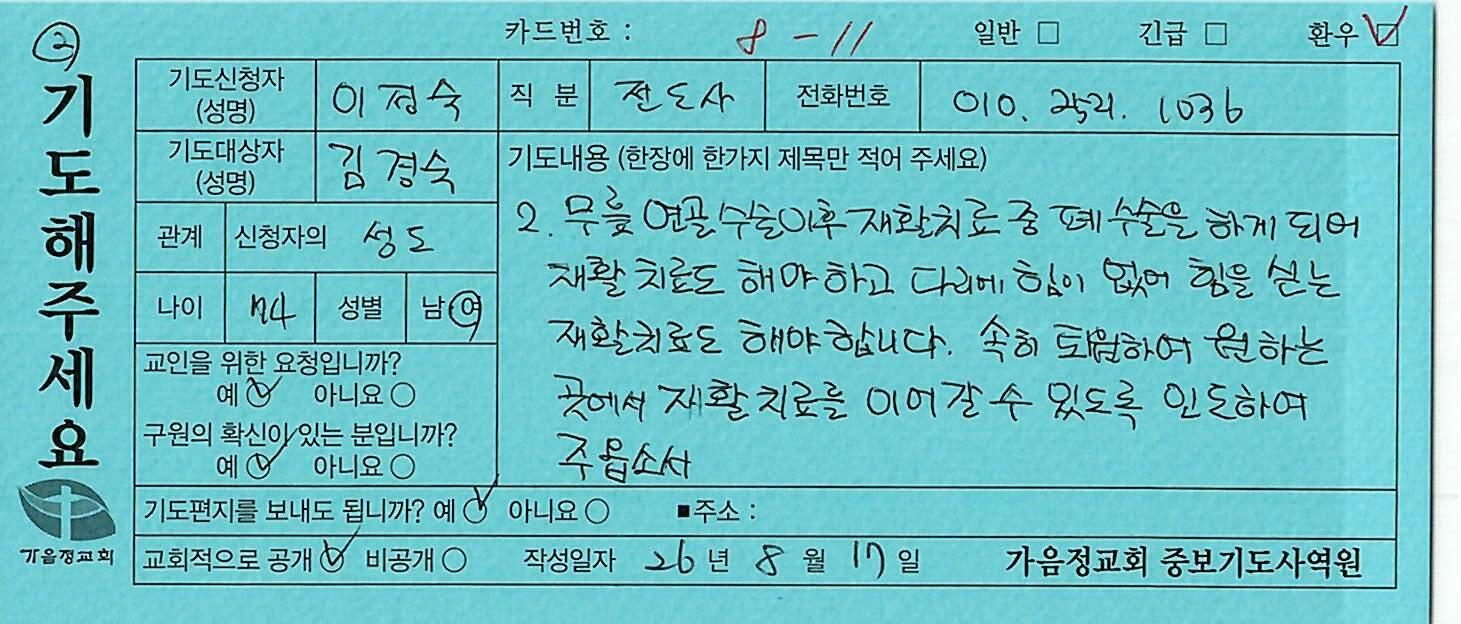 ② 카드번호 : 8 - 11 일반 □ 긴급 □ 환우 ☑
기도해주세요
기도신청자 (성명) 이정숙 직 분 전도사 전화번호 010. 2521. 1036
기도대상자 (성명) 김경숙
관계 신청자의 성도
나이 74 성별 남 여
교인을 위한 요청입니까?
예 ✓ 아니요 ○
구원의 확신이 있는 분입니까?
예 ✓ 아니요 ○
기도내용 (한장에 한가지 제목만 적어 주세요)
2. 무릎 연골 수술이후 재활치료 중 폐 수술을 하게 되어
재활 치료도 해야 하고 다리에 힘이 없어 힘을 싣는
재활치료도 해야 합니다. 속히 퇴원하여 원하는
곳에서 재활치료를 이어갈 수 있도록 인도하여
주옵소서
기도편지를 보내도 됩니까? 예 ✓ 아니요 ○ ■주소 :
교회적으로 공개 ✓ 비공개 ○ 작성일자 26 년 8 월 17 일 가음정교회 중보기도사역원
가음정교회